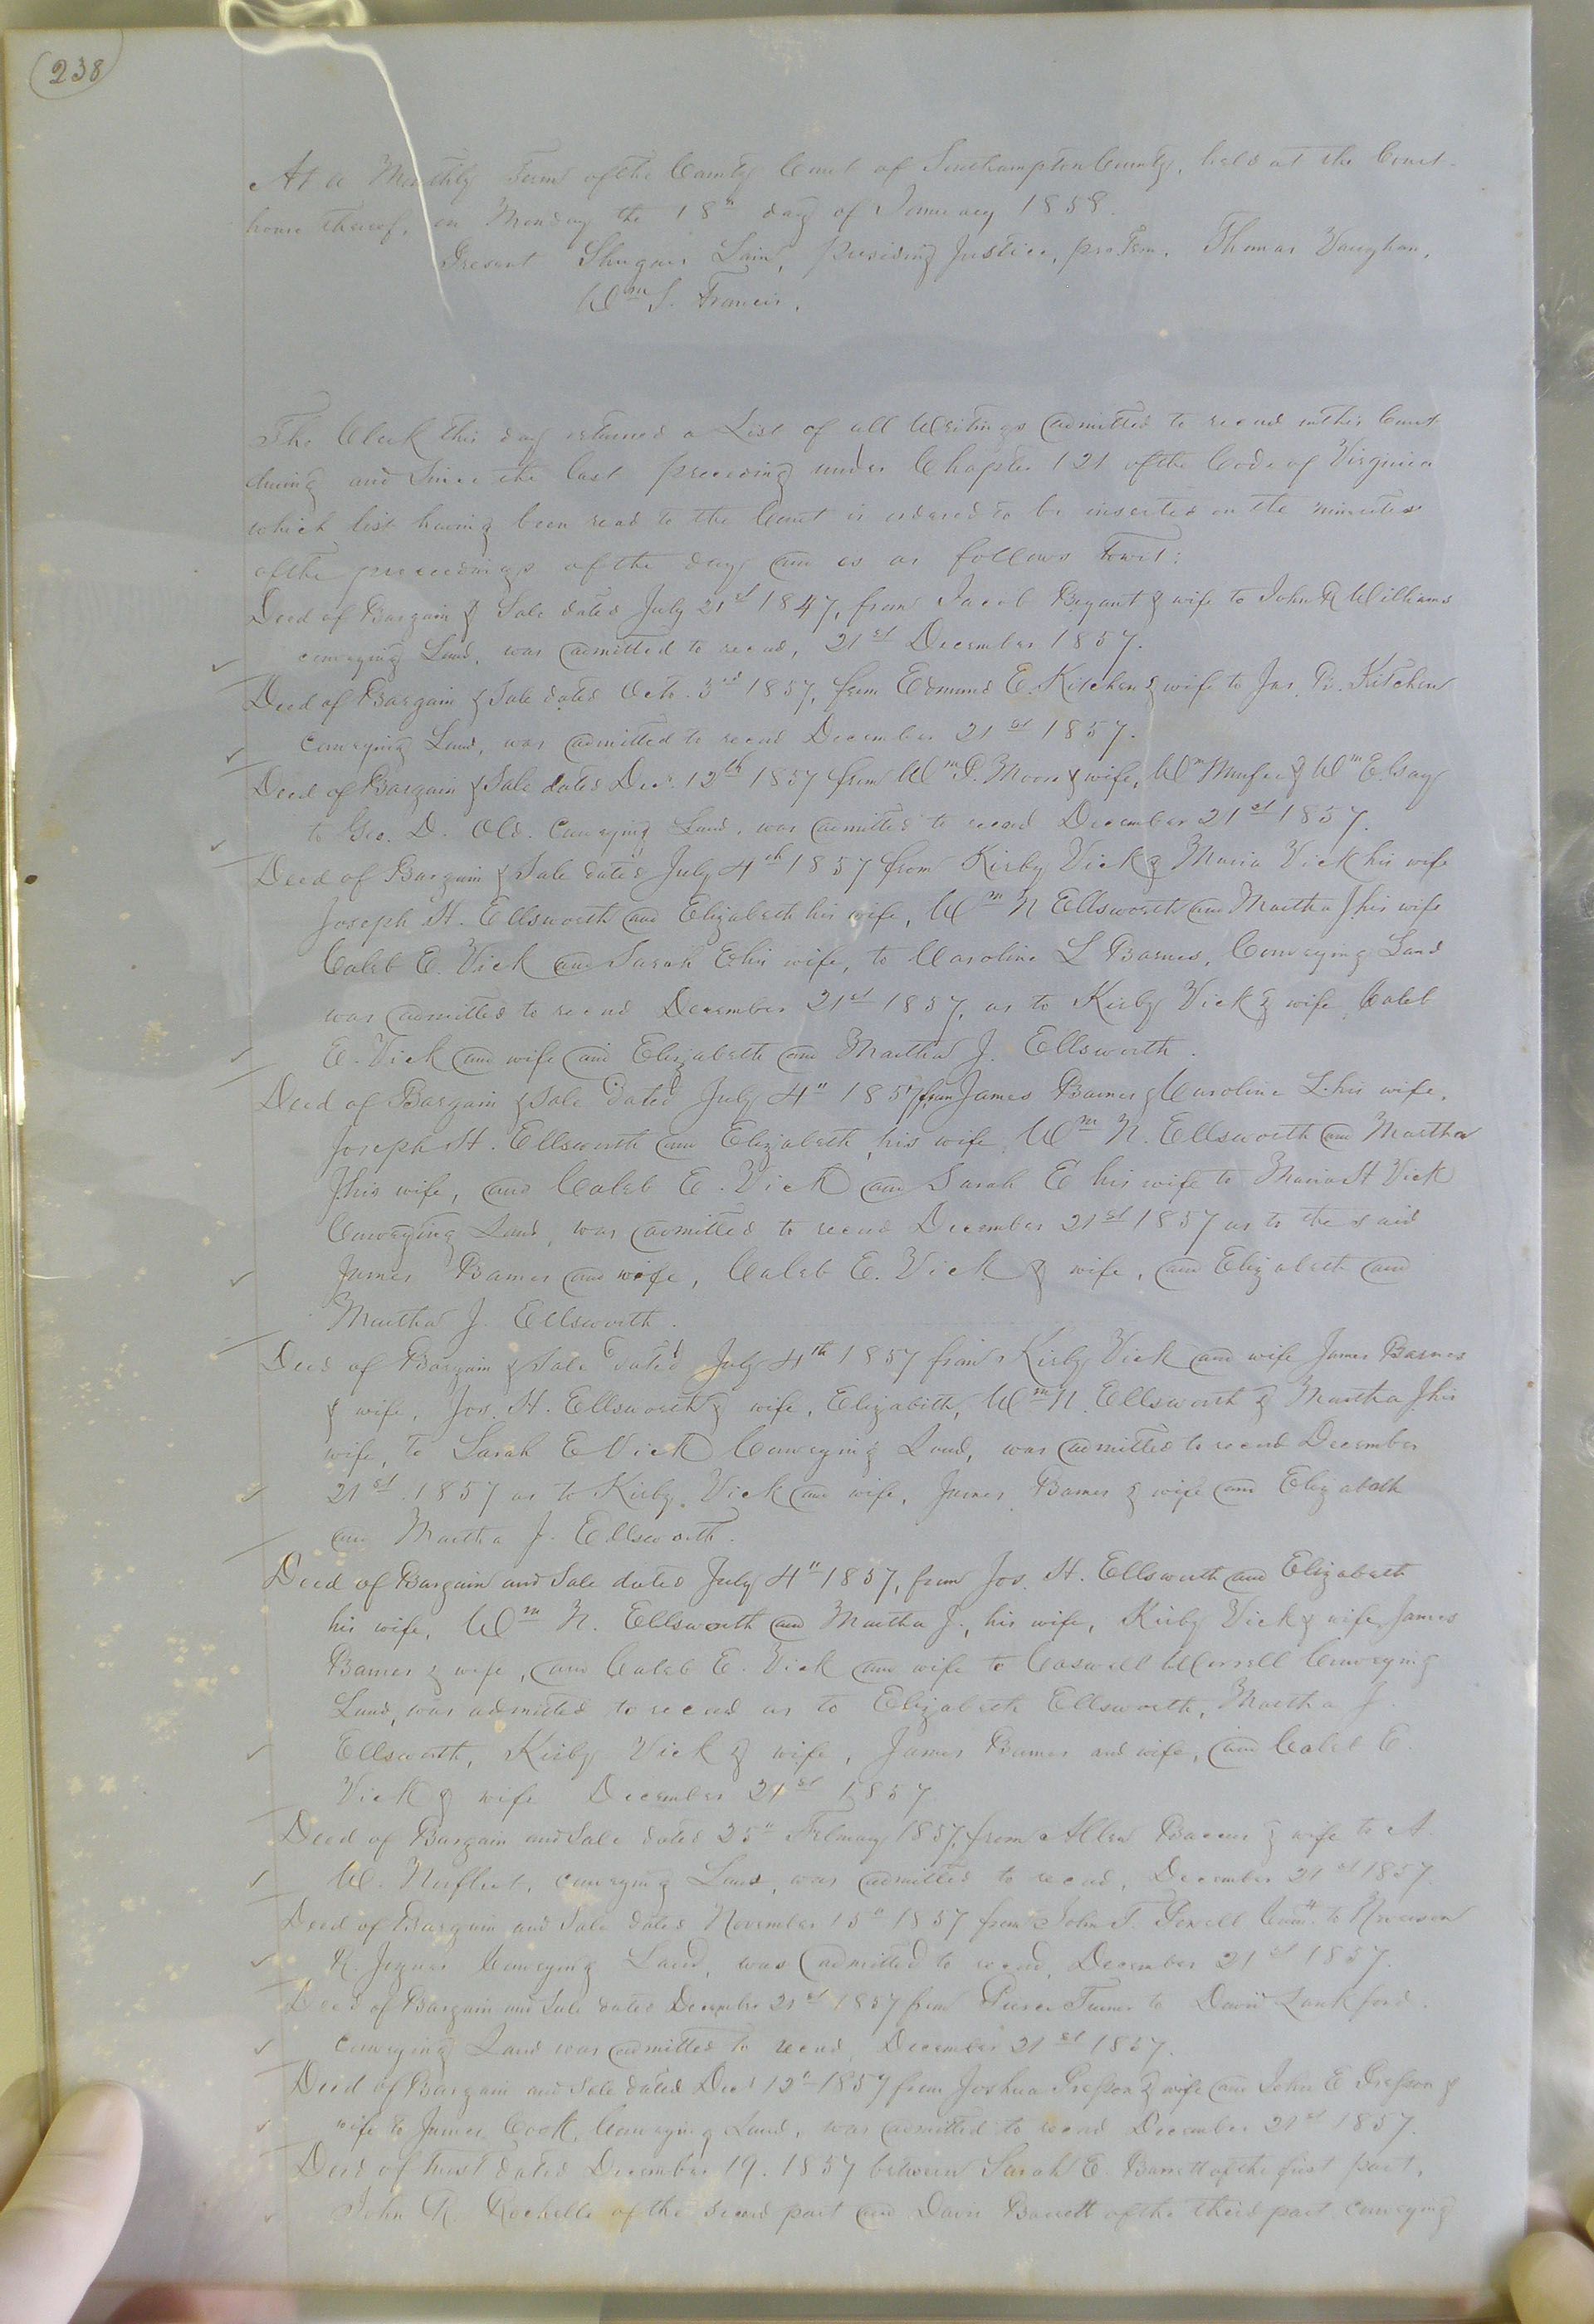 238
At a Monthly Term of the County Court of Southampton County, held at the Court
house thereof, on Monday the 18th day of January 1858.
Present Shugars Lain, Presiding Justice, pro Tem. Thomas Vaughan,
Wm S. Francis,
The Clerk this day returned a List of all Writings admitted to record in this Court
during and since the last preceding under Chapter 121 of the Code of Virginia
which list having been read to the Court is ordered to be inserted on the minutes
of the proceedings of the day and is as follows towit:
Deed of Bargain & Sale dated July 21st 1847, from Jacob Bryant & wife to John R Williams
conveying Land, was admitted to record, 21st December 1857.
Deed of Bargain & Sale dated Octo. 3rd 1857, from Edmund E. Kitchen & wife to Jas. Kitchen
Conveying Land, was admitted to record December 21st 1857.
Deed of Bargain & Sale dated Decr. 12th 1857 from Wm Moore & wife, Wm & Wm E. Gay
to Geo. D. Old. Conveying Land, was admitted to record December 21st 1857.
Deed of Bargain & Sale dated July 4th 1857 from Kirby Vick & Maria Vick his wife
Joseph H. Ellsworth and Elizabeth his wife, Wm N Ellsworth and Martha J. his wife
Caleb E. Vick and Sarah E his wife, to Caroline L Barnes, Conveying Land
was admitted to record December 21st 1857, as to Kirby Vick & wife, Caleb
E. Vick and wife and Elizabeth and Martha J. Ellsworth.
Deed of Bargain & Sale dated July 4" 1857 from James Barnes & Caroline L. his wife,
Joseph H. Ellsworth and Elizabeth his wife, Wm N. Ellsworth and Martha
J his wife, and Caleb E. Vick and Sarah E his wife to Maria H Vick
Conveying Land, was admitted to record December 21st 1857 as to the said
James Barnes and wife, Caleb E. Vick & wife, and Elizabeth and
Martha J. Ellsworth.
Deed of Bargain & Sale dated July 4th 1857 from Kirby Vick and wife James Barnes
& wife, Jos. H. Ellsworth & wife, Elizabeth, Wm N. Ellsworth & Martha J. his
wife, to Sarah E Vick Conveying Land, was admitted to record December
21st 1857 as to Kirby Vick and wife, James Barnes & wife and Elizabeth
and Martha J. Ellsworth.
Deed of Bargain and Sale dated July 4" 1857, from Jos. H. Ellsworth and Elizabeth
his wife, Wm N. Ellsworth and Martha J., his wife, Kirby Vick & wife, James
Barnes & wife, and Caleb E. Vick and wife to Caswell Worrell Conveying
Land, was admitted to record as to Elizabeth Ellsworth, Martha J.
Ellsworth, Kirby Vick & wife, James Barnes and wife, and Caleb E.
Vick & wife December 21st 1857
Deed of Bargain and Sale dated 25" February 1857, from Allen & wife to A.
W. Norfleet, conveying Land, was admitted to record, December 21st 1857.
Deed of Bargain and Sale dated November 15" 1857 from John T. to
K. Joyner Conveying Land, was admitted to record, December 21st 1857.
Deed of Bargain and Sale dated December 21st 1857 from Turner to David Lankford.
conveying Land was admitted to record, December 21st 1857.
Deed of Bargain and Sale dated Decr 12" 1857 from Joshua Gresson & wife and John E Gresson &
wife to James Cook, Conveying Land, was admitted to record December 21st 1857.
Deed of trust dated December 19. 1857 between Sarah E. Barrett of the first part,
John R. Rochelle of the second part and Davis Barrett of the third part conveying